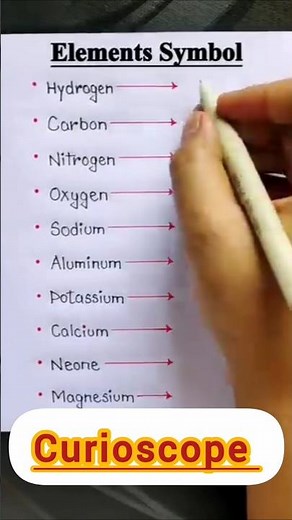 Elements Symbol
• Hydrogen →
• Carbon →
• Nitrogen →
• Oxygen →
• Sodium →
• Aluminum →
• Potassium →
• Calcium →
• Neone →
• Magnesium →
Curioscope